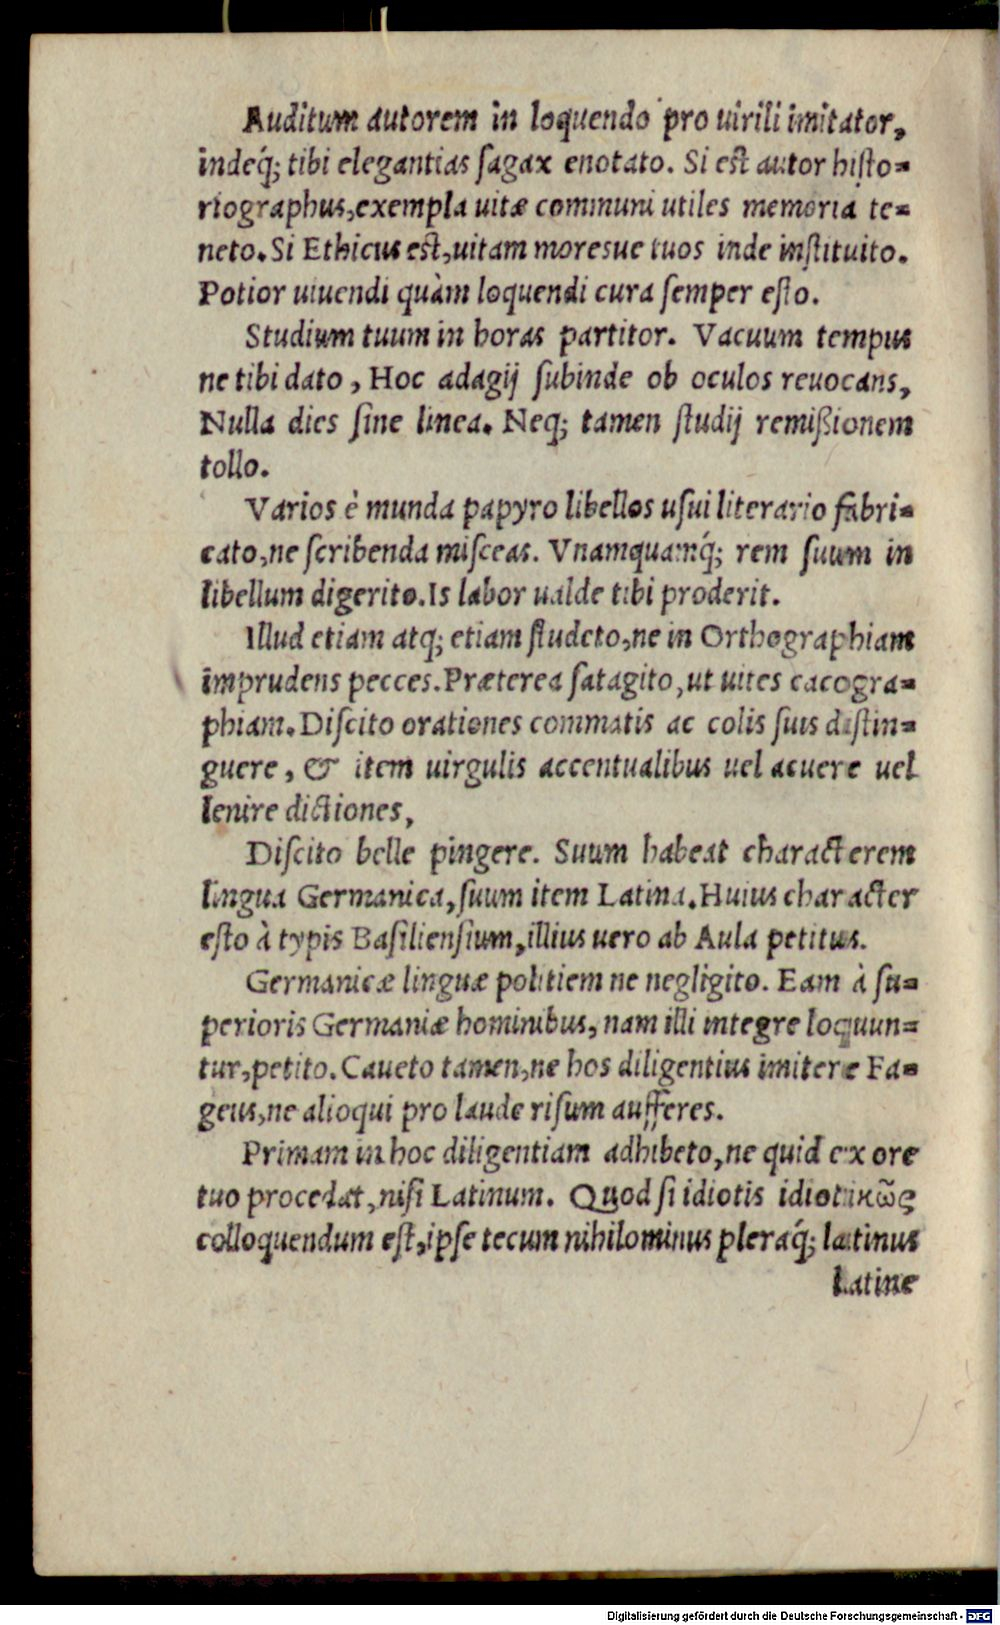 Auditum autorem in loquendo pro uirili imitator,
indeq́; tibi elegantias ſagax enotato. Si est autor hiſto=
riographus, exempla uitæ communi utiles memoria te=
neto. Si Ethicus est, uitam moresue tuos inde inſtituito.
Potior uiuendi quàm loquendi cura ſemper eſto.
Studium tuum in horas partitor. Vacuum tempus
ne tibi dato, Hoc adagij ſubinde ob oculos reuocans,
Nulla dies ſine linea. Neq; tamen ſtudij remißionem
tollo.
Varios è munda papyro libellos uſui literario fabri=
cato, ne ſcribenda miſceas. Vnamquamq́; rem ſuum in
libellum digerito. Is labor ualde tibi proderit.
Illud etiam atq; etiam ſtudeto, ne in Orthographiam
imprudens pecces. Præterea ſatagito, ut uites cacogra=
phiam. Diſcito orationes commatis ac colis ſuis diſtin=
guere, & item uirgulis accentualibus uel acuere uel
lenire dictiones,
Diſcito belle pingere. Suum habeat characterem
lingua Germanica, ſuum item Latina. Huius character
eſto à typis Baſilienſium, illius uero ab Aula petitus.
Germanicæ linguæ politiem ne negligito. Eam à ſu=
perioris Germaniæ hominibus, nam illi integre loquun=
tur, petito. Caueto tamen, ne hos diligentius imitere Fa=
geus, ne alioqui pro laude riſum aufferes.
Primam in hoc diligentiam adhibeto, ne quid ex ore
tuo procedat, niſi Latinum. Quod ſi idiotis idiotικῶς
colloquendum eſt, ipſe tecum nihilominus pleraq́; latinus
Latine
Digitalisierung gefördert durch die Deutsche Forschungsgemeinschaft - DFG